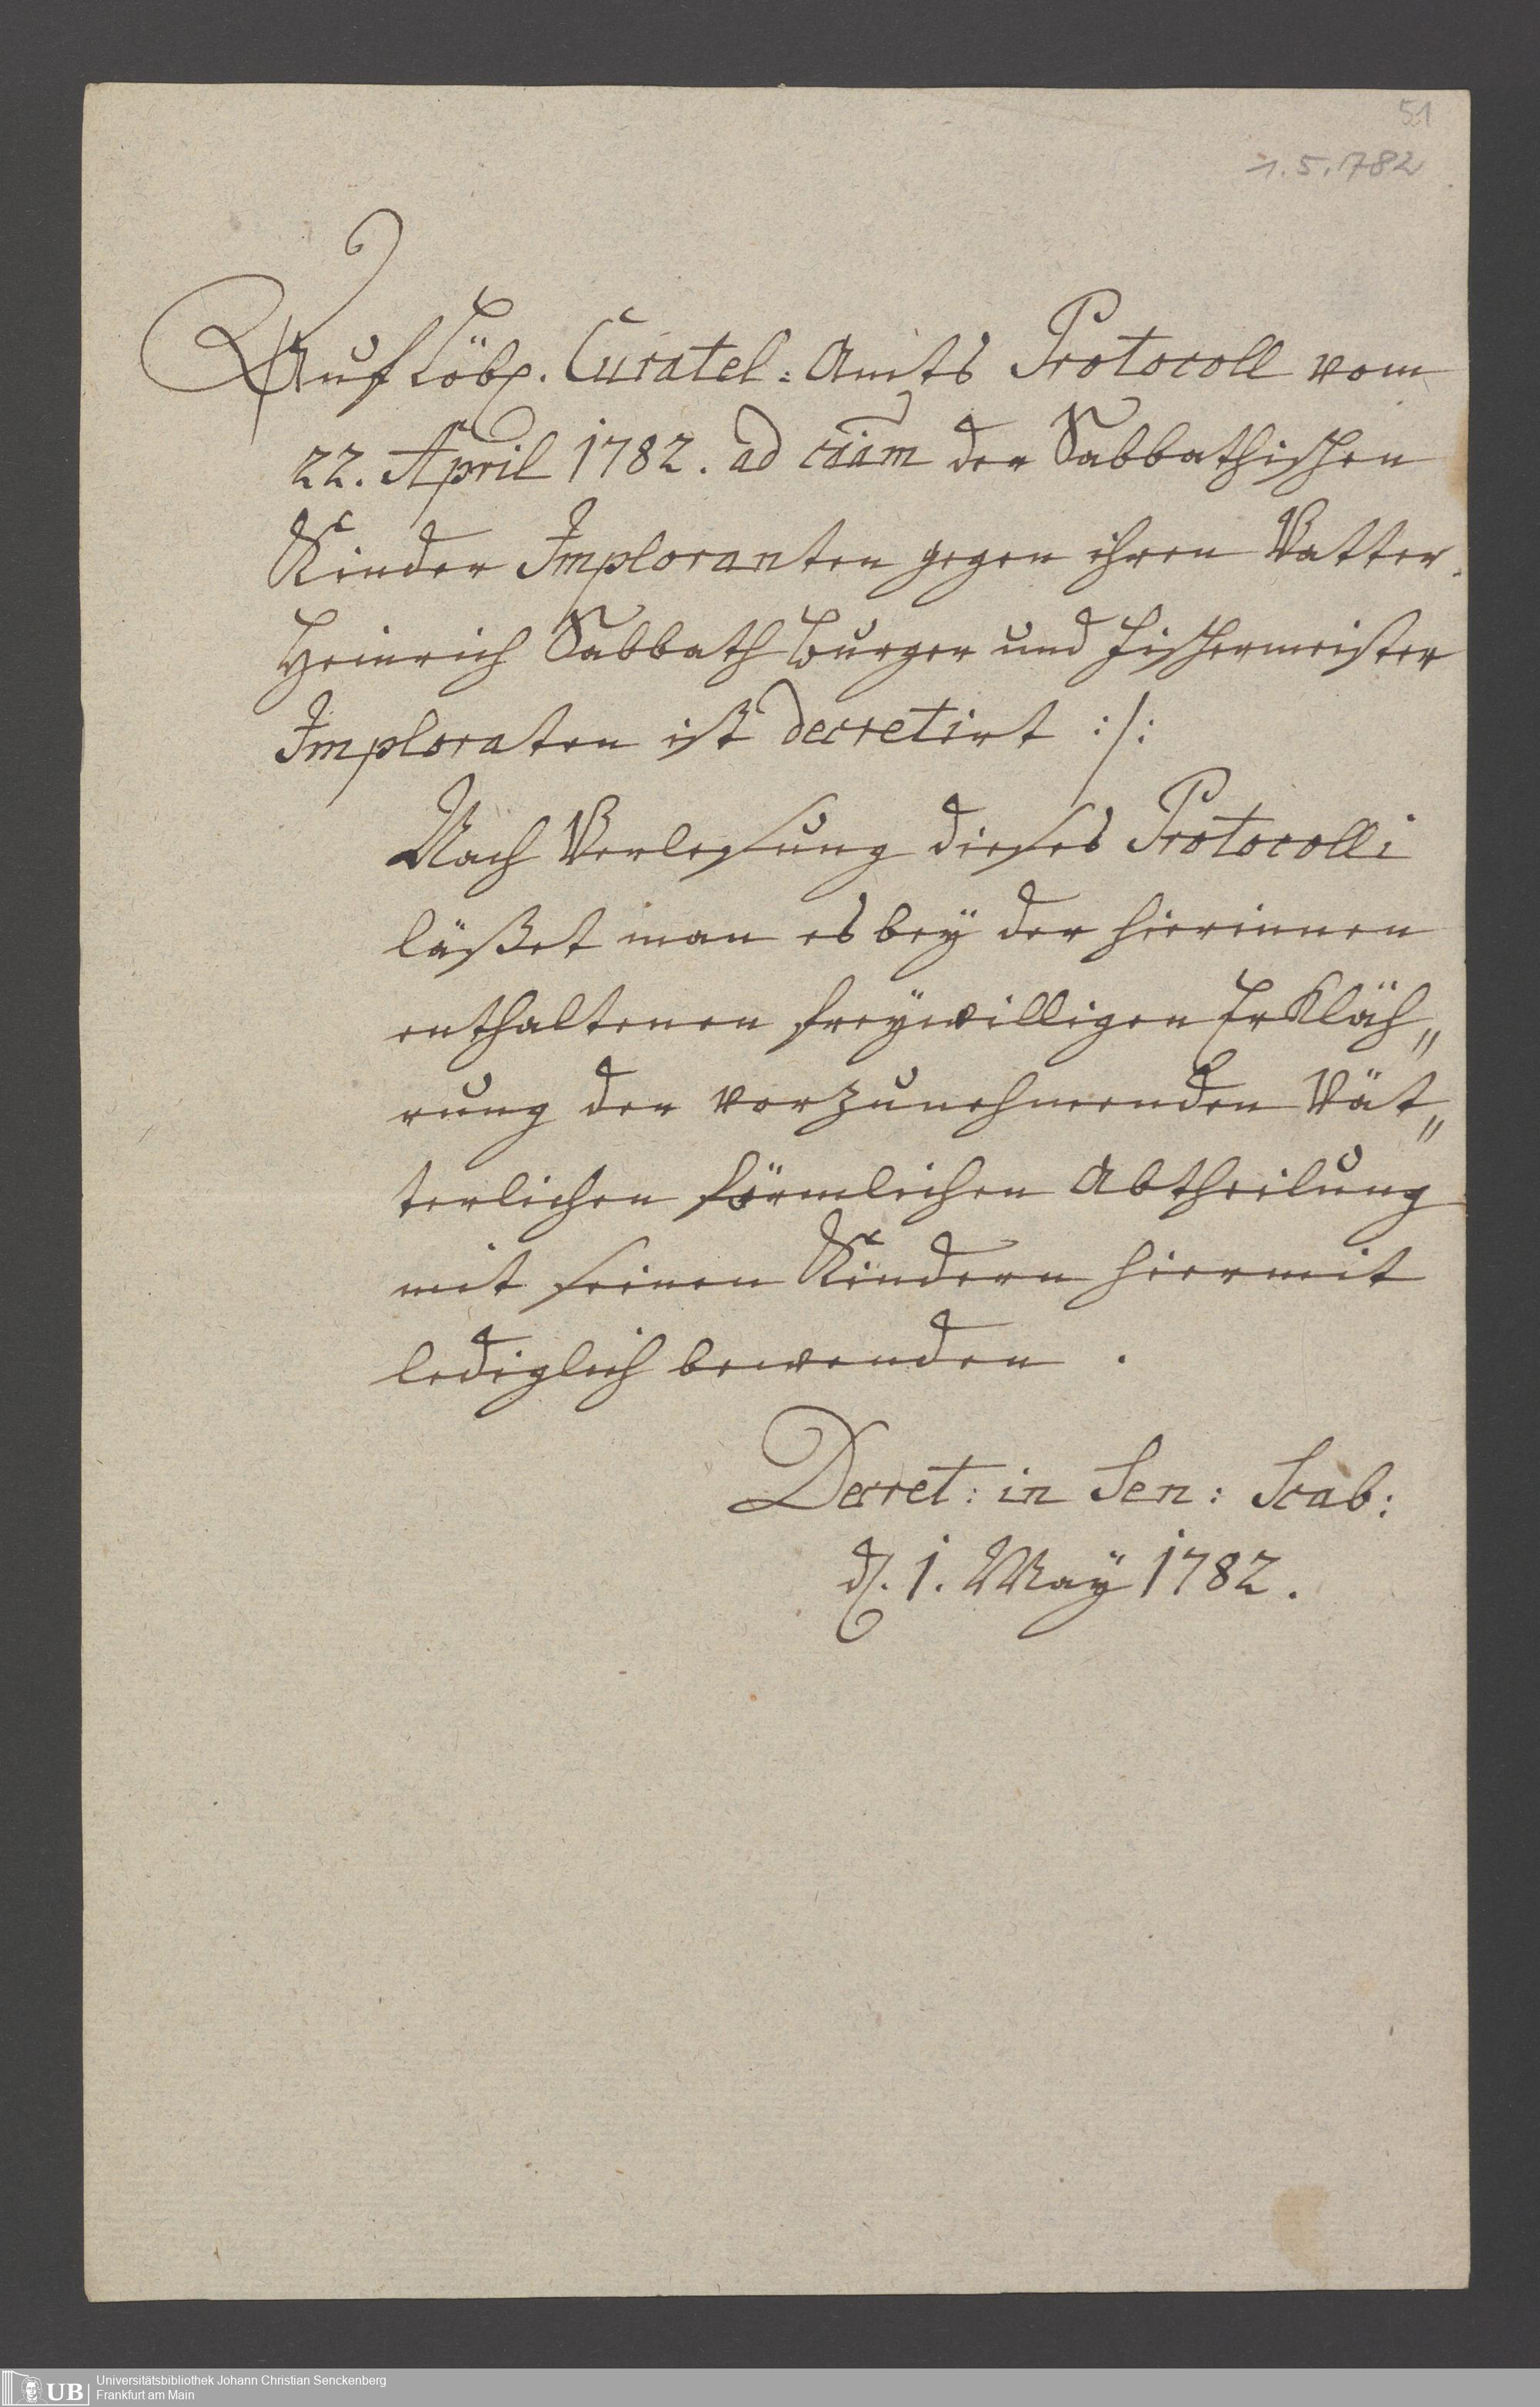 51
1.5.1782
Auf Löbl. Curatel-Amts Protocoll vom
22. April 1782. ad caam der Sabbathischen
Kinder Imploranten gegen ihren Vatter
Heinrich Sabbath Burger und Fischermeister
Imploraten ist decretirt :/:
Nach Verlesung dieses Protocolli
läßet man es beÿ der hierinnen
enthaltenen freÿwilligen Erkläh„
rung der vorzunehmenden Vät„
terlichen förmlichen Abtheilung
mit seinen Kindern hiermit
lediglich bewenden .
Decret: in Sen: Scab:
d. 1. Maÿ 1782.
UB
Universitätsbibliothek Johann Christian Senckenberg
Frankfurt am Main